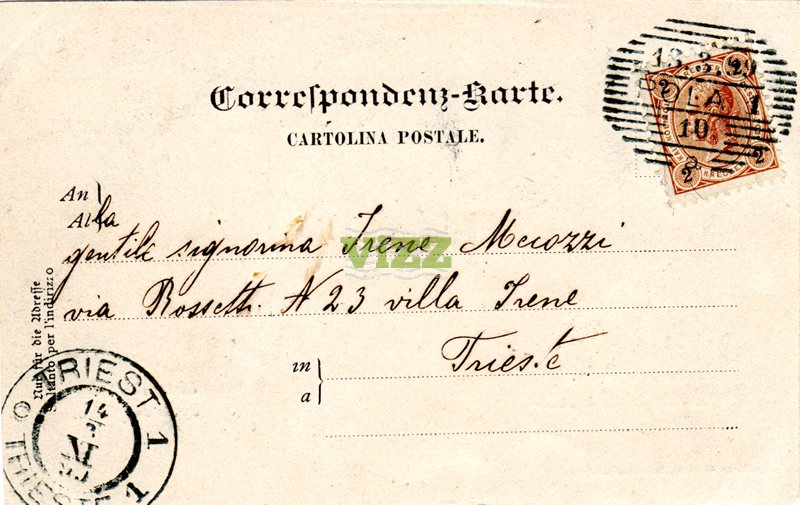 Correspondenz-Karte.
CARTOLINA POSTALE.
13.3.99
POLA 1
10
2 KREUZER 2
2 KREUZER 2
An
Alla
gentile signorina Irene
via Rossetti N 23 villa Irene
in Trieste
a
Nur für die Adresse
per l'indirizzo
TRIEST 1
14
3
TRIESTE 1
VIZZ